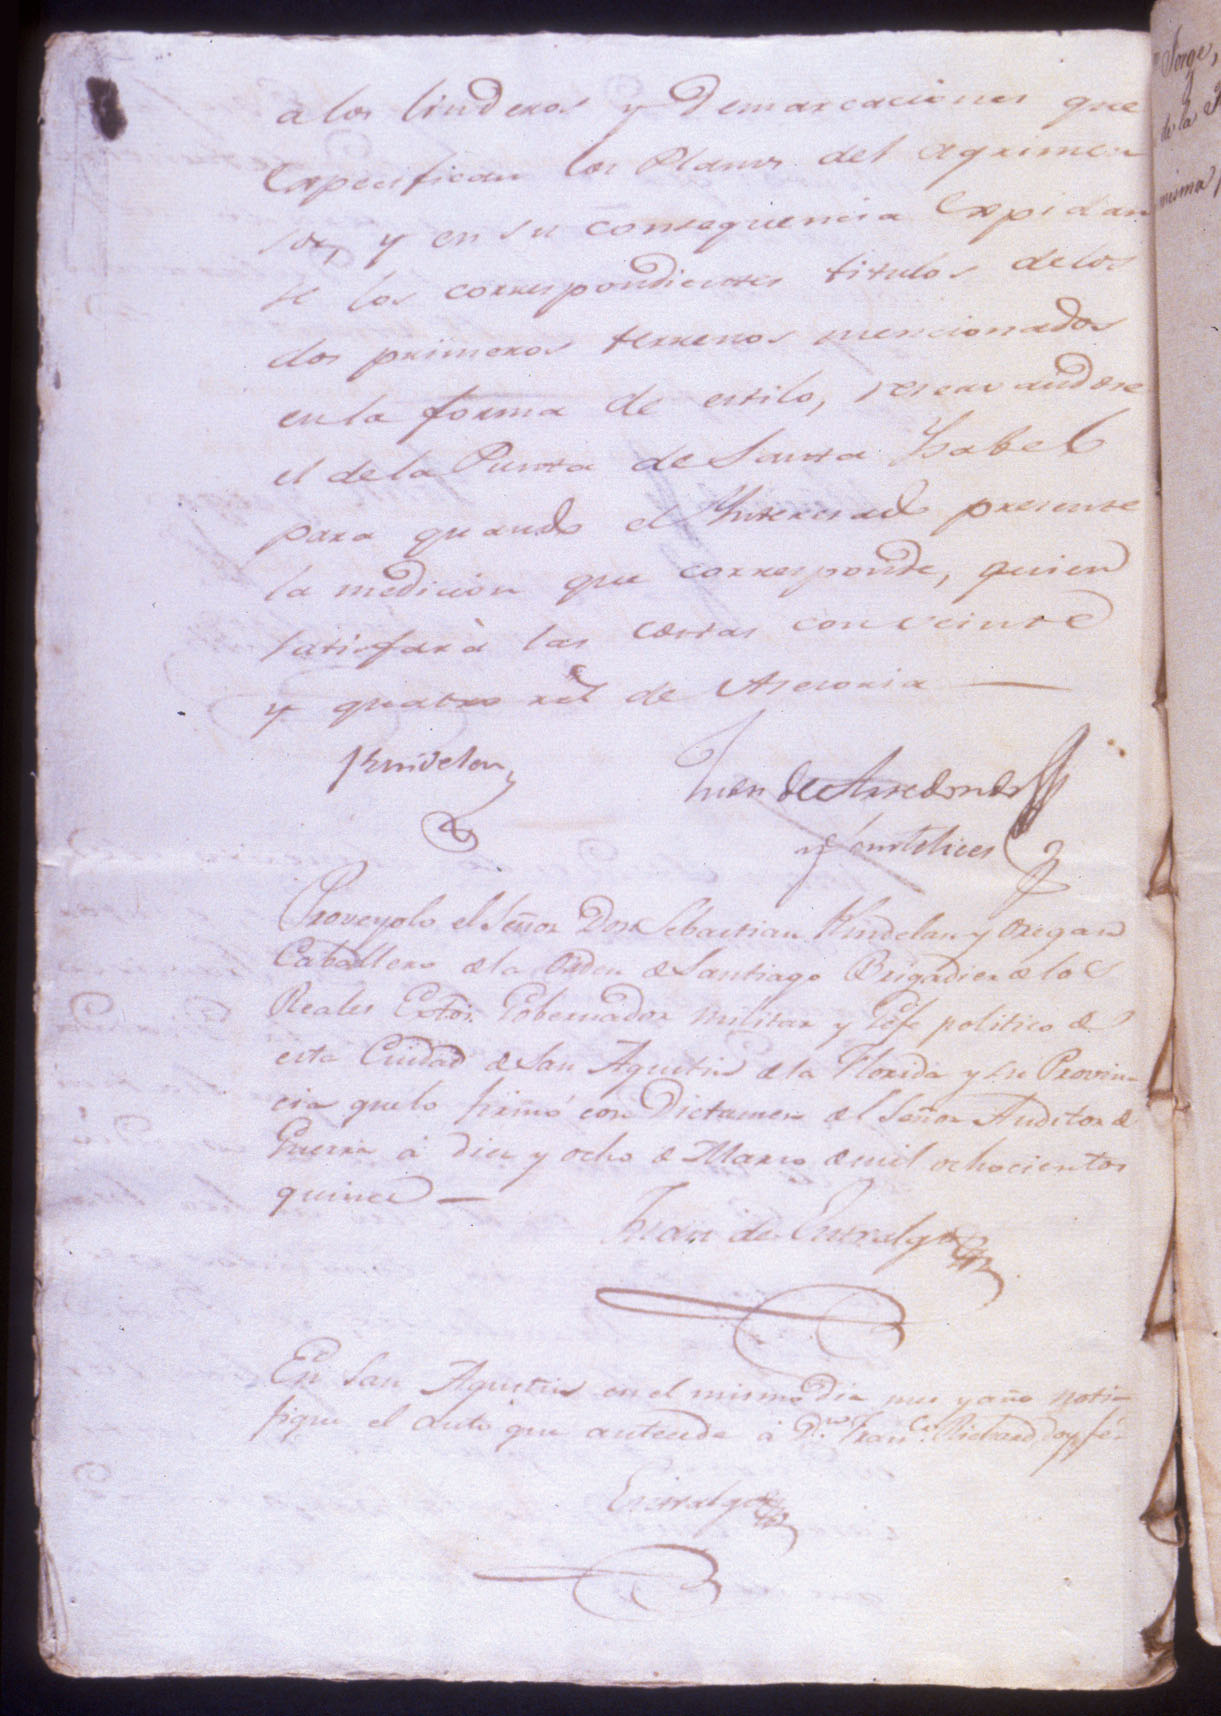 a los linderos y Demarcaciones que
Expecifican los Planos del agrimen
sor, y en su consequencia Expidan
se los correspondientes titulos delos
dos primeros terrenos mencionados
en la forma de estilo, reservandose
el de la Punta de Santa Ysabel
para quando el Ynteresado presente
la medicion que corresponde, quien
satisfará las costas con veinte
y quatro rs̃ de Asesoria —
Kindelan
Juan de Arredondo
y Santelices
Proveyolo el Señor Don Sebastian Kindelan y Oregan
Caballero de la Orden de Santiago Brigadier de los
Reales Extos. Gobernador militar y Gefe politico de
esta Ciudad de San Agustin de la Florida y su Provin-
cia que lo firmó con Dictamen del Señor Auditor de
Guerra á diez y ocho de Marzo de mil ochocientos
quince —
Juan de Entralgo
En San Agustin en el mismo dia mes y año noti-
fique el auto que antecede á Dn. Franco. Richard, doy fé-
Entralgo
Jorge,
de la
misma